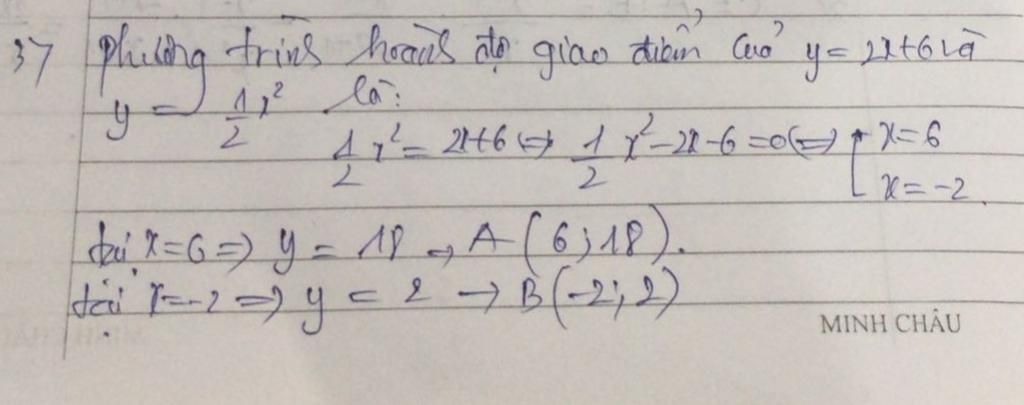 3) Phương trình hoành độ giao điểm của y = 2x+6 và
y = 1/2 x² là:
1/2 x² = 2x+6 ⇔ 1/2 x² - 2x - 6 = 0 ⇔ [ x = 6
x = -2
tại x = 6 ⇒ y = 18 → A (6; 18).
tại x = -2 ⇒ y = 2 → B (-2; 2)
MINH CHÂU